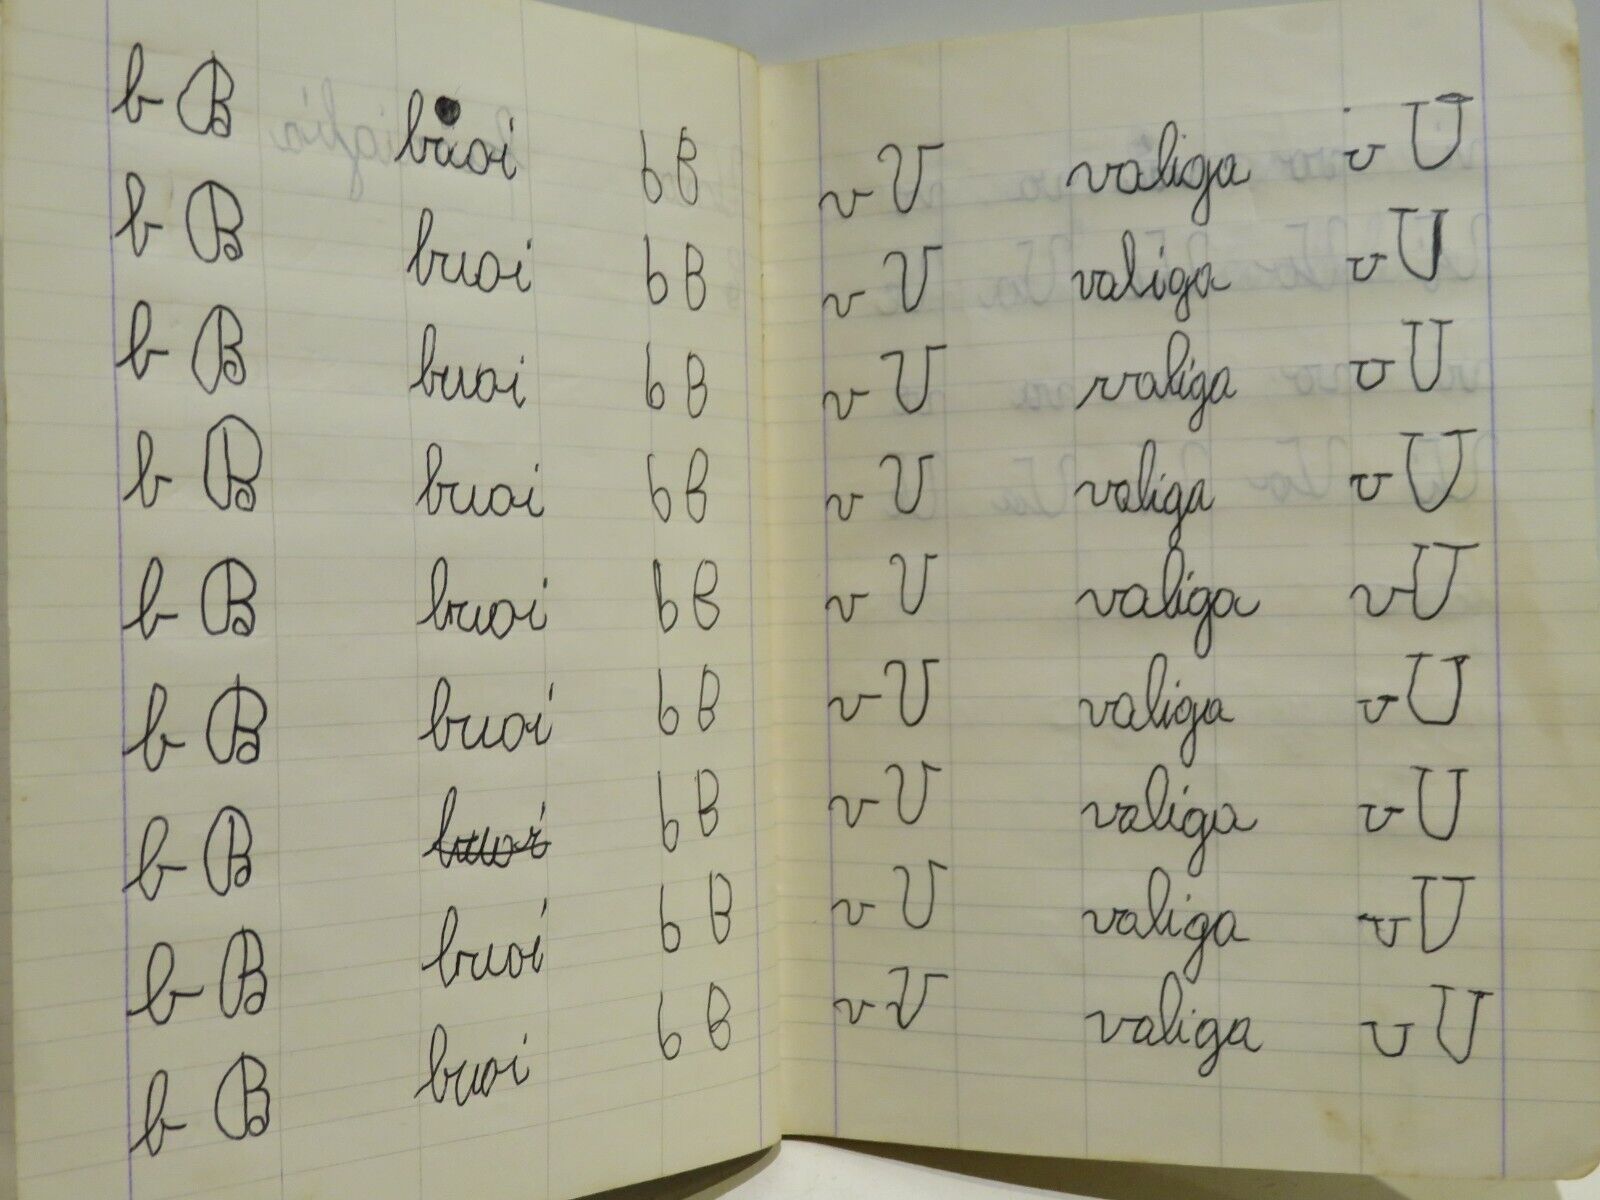 b B buoi b B
b B buoi b B
b B buoi b B
b B buoi b B
b B buoi b B
b B buoi b B
b B buoi b B
b B buoi b B
b B buoi b B
v V valiga v V
v V valiga v V
v V valiga v V
v V valiga v V
v V valiga v V
v V valiga v V
v V valiga v V
v V valiga v V
v V valiga v V